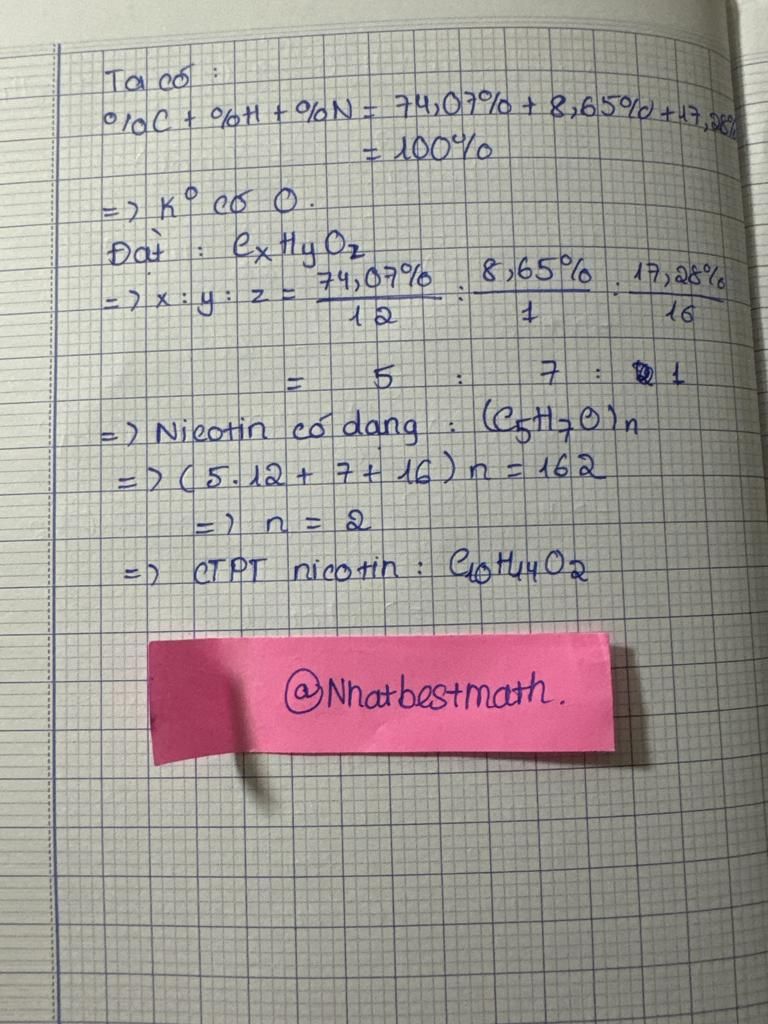 Ta có :
%C + %H + %N = 74,07% + 8,65% + 17,28%
= 100%
=> K° có O.
Đặt : CxHyOz
=> x : y : z = 74,07%/12 : 8,65%/1 : 17,28%/16
= 5 : 7 : 1
=> Nicotin có dạng : (C5H7O)n
=> (5.12 + 7 + 16) n = 162
=> n = 2
=> CTPT nicotin : C10H14O2
@Nhatbestmath.